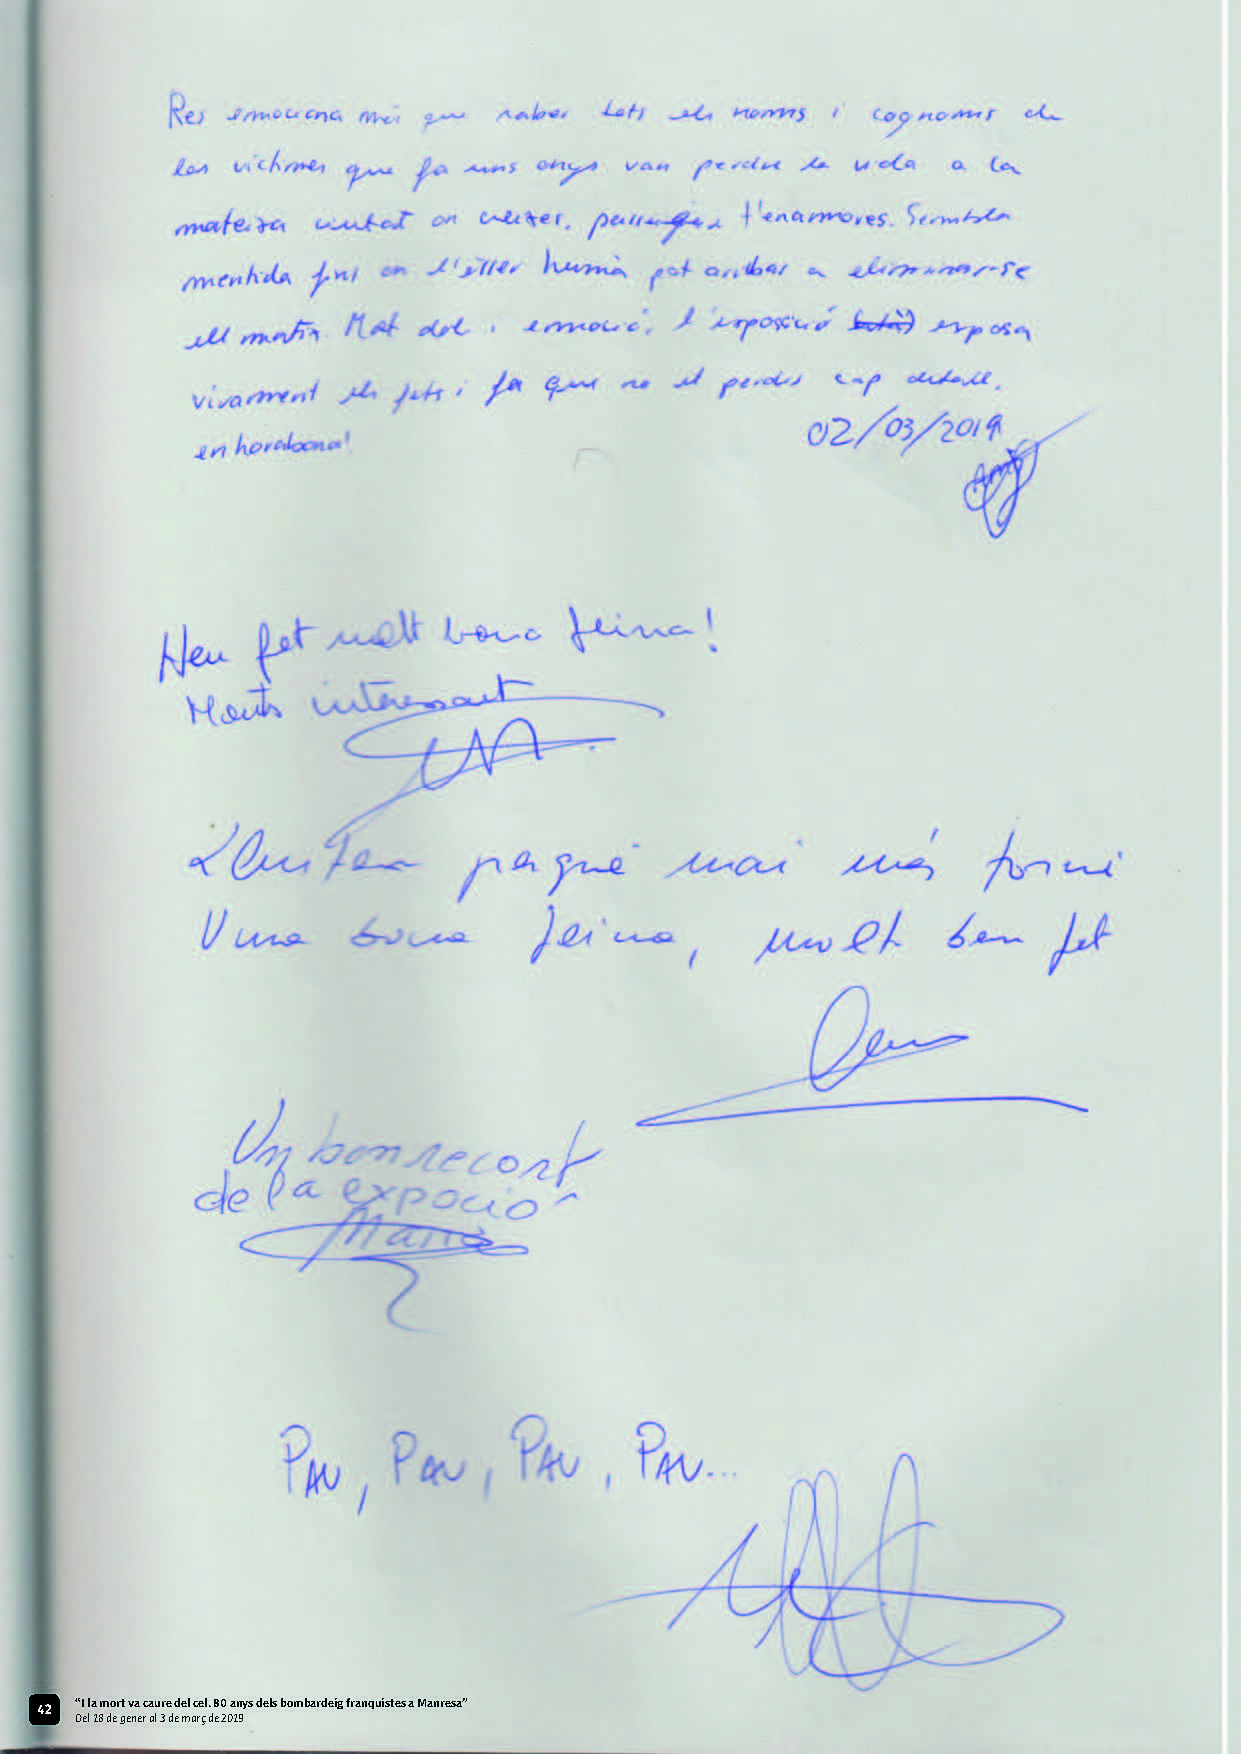 Res emociona més que saber tots els noms i cognoms de
les víctimes que fa uns anys van perdre la vida a la
mateixa ciutat on creixes, passeges i t'enamores. Sembla
mentida fins on l'ésser humà pot arribar a eliminar-se
ell mateix. Molt dol i emoció, l'exposició exposa
vivament els fets i fa que no et perdis cap detall.
enhorabona!
02/03/2019
Heu fet molt bona feina!
Molts interessant
perquè mai més torni
Una bona feina, molt ben fet
Un bon recort
de la expoció
Maria
PAU, PAU, PAU, PAU...
42
"I la mort va caure del cel. 80 anys dels bombardeig franquistes a Manresa"
Del 18 de gener al 3 de març de 2019